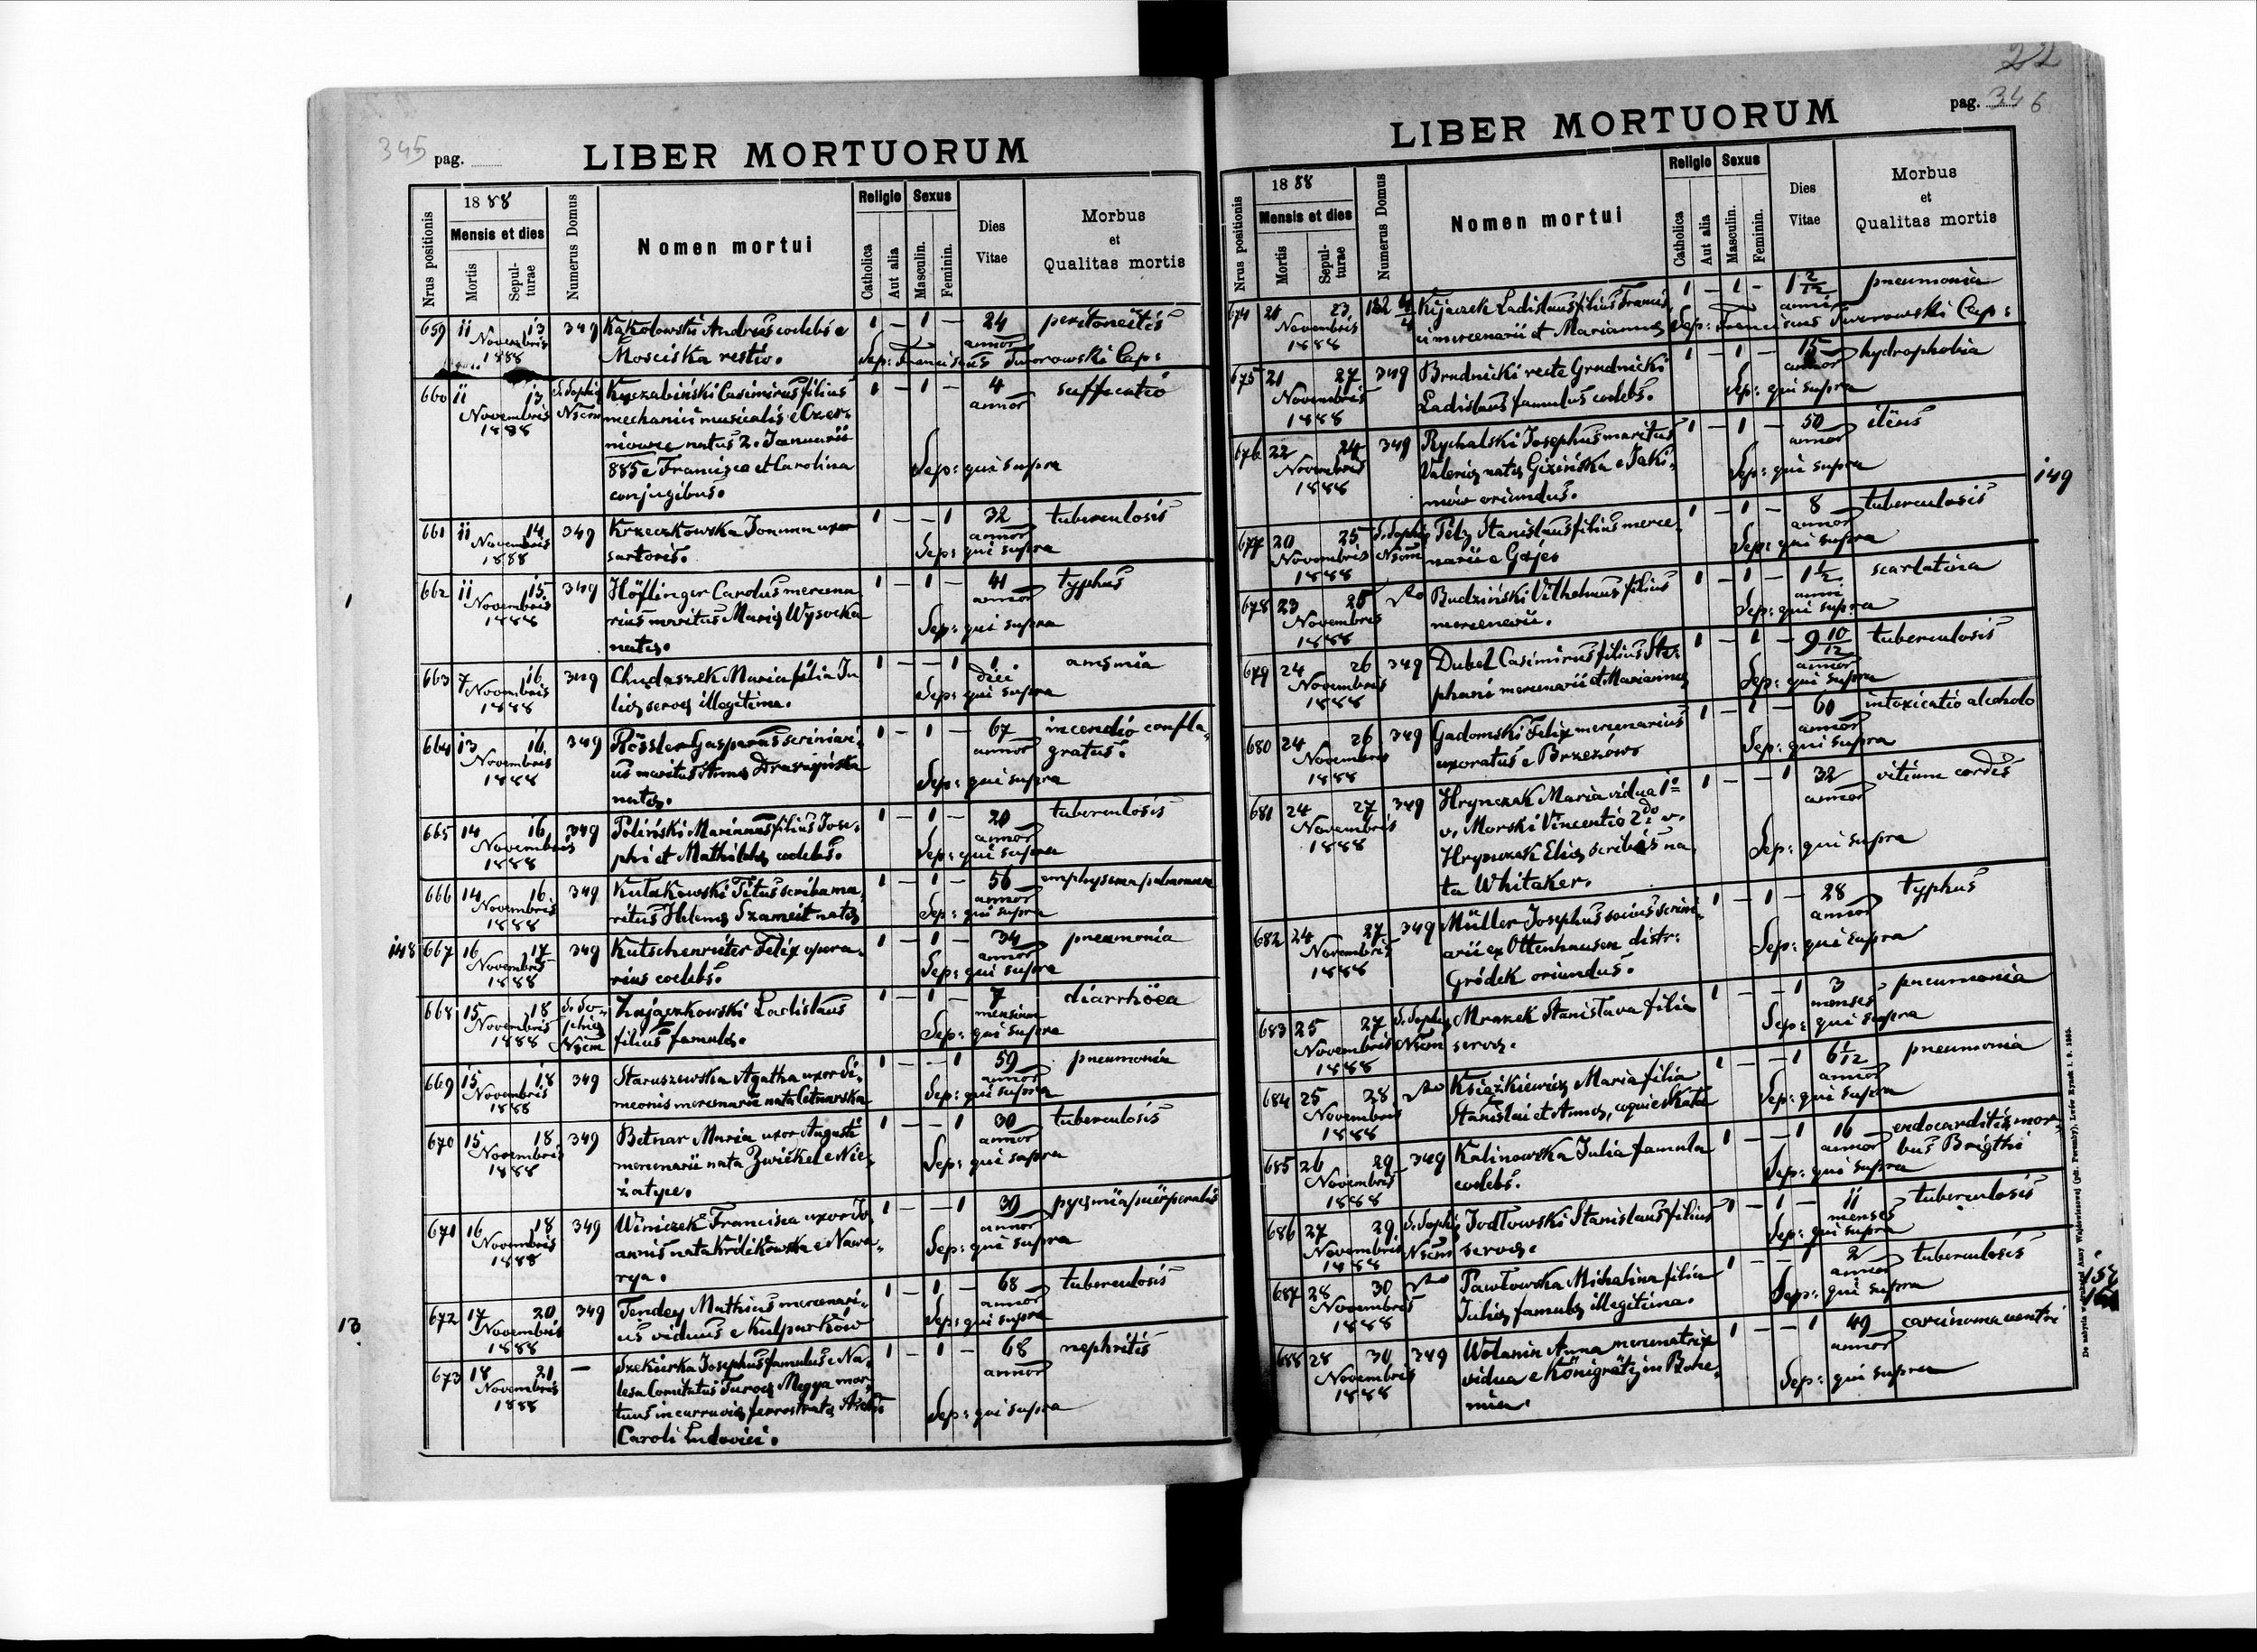 345 pag.
LIBER MORTUORUM
Nrus positionis
1888
Mensis et dies
Mortis
Sepulturae
Numerus Domus
Nomen mortui
Religio
Catholica
Aut alia
Sexus
Masculin.
Feminin.
Dies Vitae
Morbus et Qualitas mortis
659 11 13 349 Kąkolowski Andreas coelebs e 1 – 1 – 24 peritoneitis
Novembris Mosciska restio. annor
1888 Sep: Franciscus Tworowski Cap:
660 11 13 S. Sophia Kuczabiński Casimirus filius 1 – 1 – 4 suffocatio
Novembris Nscm mechanici musicalis e Czer- annor
1888 niowce natus 2. Januarii
885 e Francisca et Carolina Sep: qui supra
conjugibus.
661 11 14 349 Krzeczkowska Joanna uxor 1 – – 1 32 tuberculosis
Novembris sartoris. annor
1888 Sep: qui supra
662 11 15 349 Höflinger Carolus mercena 1 – 1 – 41 typhus
Novembris rius maritus Mariæ Wysocka annor
1888 natæ. Sep: qui supra
663 7 16 349 Chudaszek Maria filia Ju 1 – – 1 1 anæmia
Novembris liæ servæ illegitima. diei
1888 Sep: qui supra
664 13 16 349 Rössler Gasparus scriniari- 1 – 1 – 67 incendio confla-
Novembris us maritus Annæ annor gratus.
1888 natæ. Sep: qui supra
665 14 16 349 Poliński Marianus filius Jose- 1 – 1 – 20 tuberculosis
Novembris phi et Mathildæ coelebs. annor
1888 Sep: qui supra
666 14 16 349 Kułakowski Titus scriba ma- 1 – 1 – 56 emphysema pulmonum
Novembris ritus Helenæ Szameit natæ annor
1888 Sep: qui supra
148 667 16 17 349 Kutschenriter Felix opera- 1 – 1 – 34 pneumonia
Novembris rius coelebs. annor
1888 Sep: qui supra
668 15 18 S. So- Zajączkowski Ladislaus 1 – 1 – 7 diarrhöea
Novembris phiæ filius famulæ. mensium
1888 Nscm Sep: qui supra
669 15 18 349 Staruszewska Agatha uxor Si- 1 – – 1 59 pneumonia
Novembris meonis mercenarii nata Cetnarska annor
1888 Sep: qui supra
670 15 18 349 Betnar Maria uxor Augusti 1 – – 1 30 tuberculosis
Novembris mercenarii nata Zwickel e Nie- annor
1888 żatyce. Sep: qui supra
671 16 18 349 Winiczek Francisca uxor Jo 1 – – 1 39 pyæmia puerperalis
Novembris annis nata Królikowska e Nawa- annor
1888 rya. Sep: qui supra
13 672 17 20 349 Tendey Mathias mercenari- 1 – 1 – 68 tuberculosis
Novembris us viduus e Kulparków annor
1888 Sep: qui supra
673 18 21 – Szekierka Josephus famulus e Na- 1 – 1 – 68 nephritis
Novembris lesa Comitatus Turocz Megya mor- annor
1888 tuus in curruvia ferrostratæ Archi-
Caroli Ludovici. Sep: qui supra
22
pag. 346
LIBER MORTUORUM
Nrus positionis
1888
Mensis et dies
Mortis
Sepulturae
Numerus Domus
Nomen mortui
Religio
Catholica
Aut alia
Sexus
Masculin.
Feminin.
Dies Vitae
Morbus et Qualitas mortis
674 21 23 182 4/4 Kijaczek Ladislaus filius Francis- 1 – 1 – 1 2/12 pneumonia
Novembris ci mercenarii et Mariannæ anni
1888 Sep: Franciscus Tworowski Cap:
675 21 27 349 Brudnicki recte Grudnicki 1 – 1 – 15 hydrophobia
Novembris Ladislaus famulus coelebs. annor
1888 Sep: qui supra
676 22 24 349 Rychalski Josephus maritus 1 – 1 – 50 ileus
Novembris Valeriæ natæ Gizińska e Jaki- annor
1888 mów oriundus. Sep: qui supra
149
677 20 25 S. Sophiæ Pelz Stanislaus filius merce- 1 – 1 – 8 tuberculosis
Novembris Nscm narii e Gaje. annor
1888 Sep: qui supra
678 23 25 Budziński Vilhelmus filius 1 – 1 – 1 1/2 scarlatina
Novembris mercenarii. anni
1888 Sep: qui supra
679 24 26 349 Dubel Casimirus filius Ste- 1 – 1 – 9 10/12 tuberculosis
Novembris phani mercenarii et Mariannæ annor
1888 Sep: qui supra
680 24 26 349 Gadomski Felix mercenarius 1 – 1 – 60 intoxicatio alcoholo
Novembris uxoratus e Brzezów annor
1888 Sep: qui supra
681 24 27 349 Hrynczak Maria vidua 1o 1 – – 1 32 vitium cordis
Novembris v. Morski Vincentio 2do v. annor
1888 Hrynczak Eliæ scribæ na
ta Whitaker. Sep: qui supra
682 24 27 349 Müller Josephus socius scrini- 1 – 1 – 28 typhus
Novembris arii ex Ottenhausen distr: annor
1888 Gródek oriundus. Sep: qui supra
683 25 27 S. Sophiæ Mrazek Stanislava filia 1 – – 1 3 pneumonia
Novembris Nscm servæ. menses
1888 Sep: qui supra
684 25 28 Książkiewicz Maria filia 1 – – 1 6 1/12 pneumonia
Novembris Stanislai et Annæ, annor
1888 Sep: qui supra
685 26 29 349 Kalinowska Julia famula 1 – – 1 16 endocarditis, mor-
Novembris coelebs. annor bus Brigthi
1888 Sep: qui supra
686 27 29 S. Sophiæ Jodłowski Stanislaus filius 1 – 1 – 11 tuberculosis
Novembris Nscm servæ. menses
1888 Sep: qui supra
687 28 30 Pawłowska Michalina filia 1 – – 1 2 tuberculosis
Novembris Juliæ famulæ illegitima. annor
1888 Sep: qui supra
688 28 30 349 Wolanin Anna mercenatrix 1 – – 1 49 carcinoma ventri
Novembris vidua e Königrätz in Bohe- annor
1888 mia. Sep: qui supra